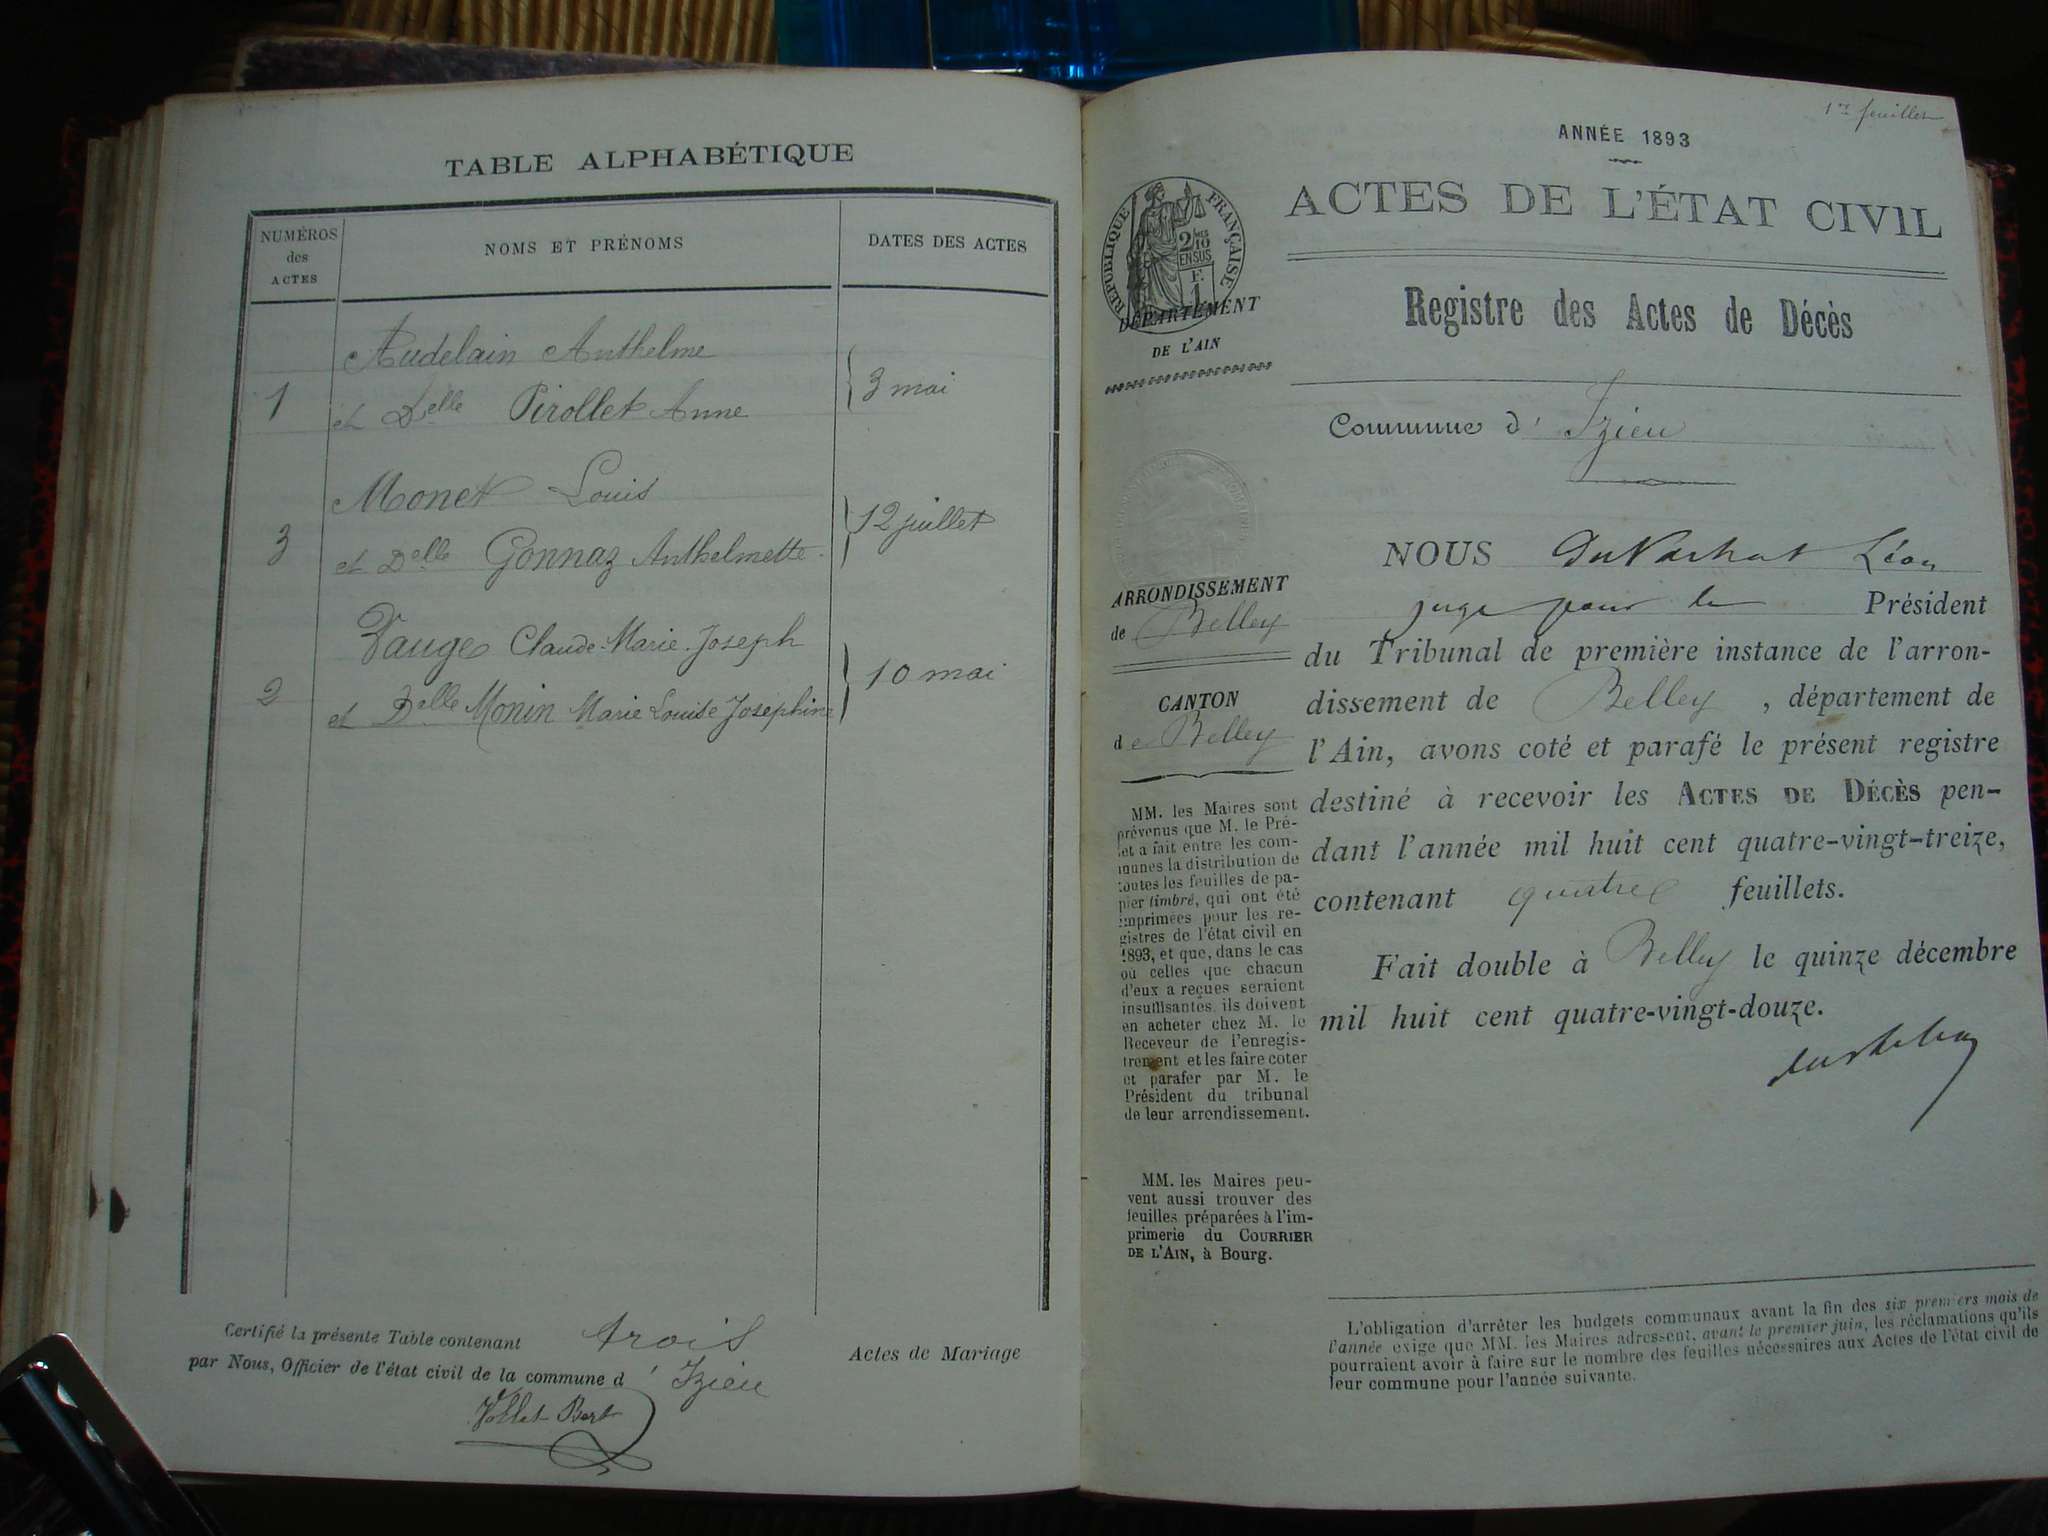 TABLE ALPHABÉTIQUE
NUMÉROS
des
ACTES
NOMS ET PRÉNOMS
DATES DES ACTES
Audelain Anthelme
1 et Delle Pirollet Anne } 3 mai
Monet Louis
3 et Delle Gonnaz Anthelmette } 12 juillet
Vauge Claude-Marie-Joseph
2 et Delle Monin Marie Louise Joséphine } 10 mai
Certifié la présente Table contenant trois Actes de Mariage
par Nous, Officier de l'état civil de la commune d'Izieu
1er feuillet
ANNÉE 1893
ACTES DE L'ÉTAT CIVIL
RÉPUBLIQUE FRANÇAISE
2/10 EN SUS
F. 1
DÉPARTEMENT
DE L'AIN
Registre des Actes de Décès
Commune d'Izieu
ARRONDISSEMENT
de Belley
CANTON
de Belley
MM. les Maires sont
prévenus que M. le Pré-
fet a fait entre les com-
munes la distribution de
toutes les feuilles de pa-
pier timbré, qui ont été
imprimées pour les re-
gistres de l'état civil en
1893, et que, dans le cas
où celles que chacun
d'eux a reçues seraient
insuffisantes, ils doivent
en acheter chez M. le
Receveur de l'enregis-
trement et les faire coter
et parafer par M. le
Président du tribunal
de leur arrondissement.
MM. les Maires peu-
vent aussi trouver des
feuilles préparées à l'im-
primerie du COURRIER
DE L'AIN, à Bourg.
NOUS Léon
juge pour le Président
du Tribunal de première instance de l'arron-
dissement de Belley, département de
l'Ain, avons coté et parafé le présent registre
destiné à recevoir les ACTES DE DÉCÈS pen-
dant l'année mil huit cent quatre-vingt-treize,
contenant quatre feuillets.
Fait double à Belley le quinze décembre
mil huit cent quatre-vingt-douze.
L'obligation d'arrêter les budgets communaux avant la fin des six premiers mois de
l'année exige que MM. les Maires adressent, avant le premier juin, les réclamations qu'ils
pourraient avoir à faire sur le nombre des feuilles nécessaires aux Actes de l'état civil de
leur commune pour l'année suivante.